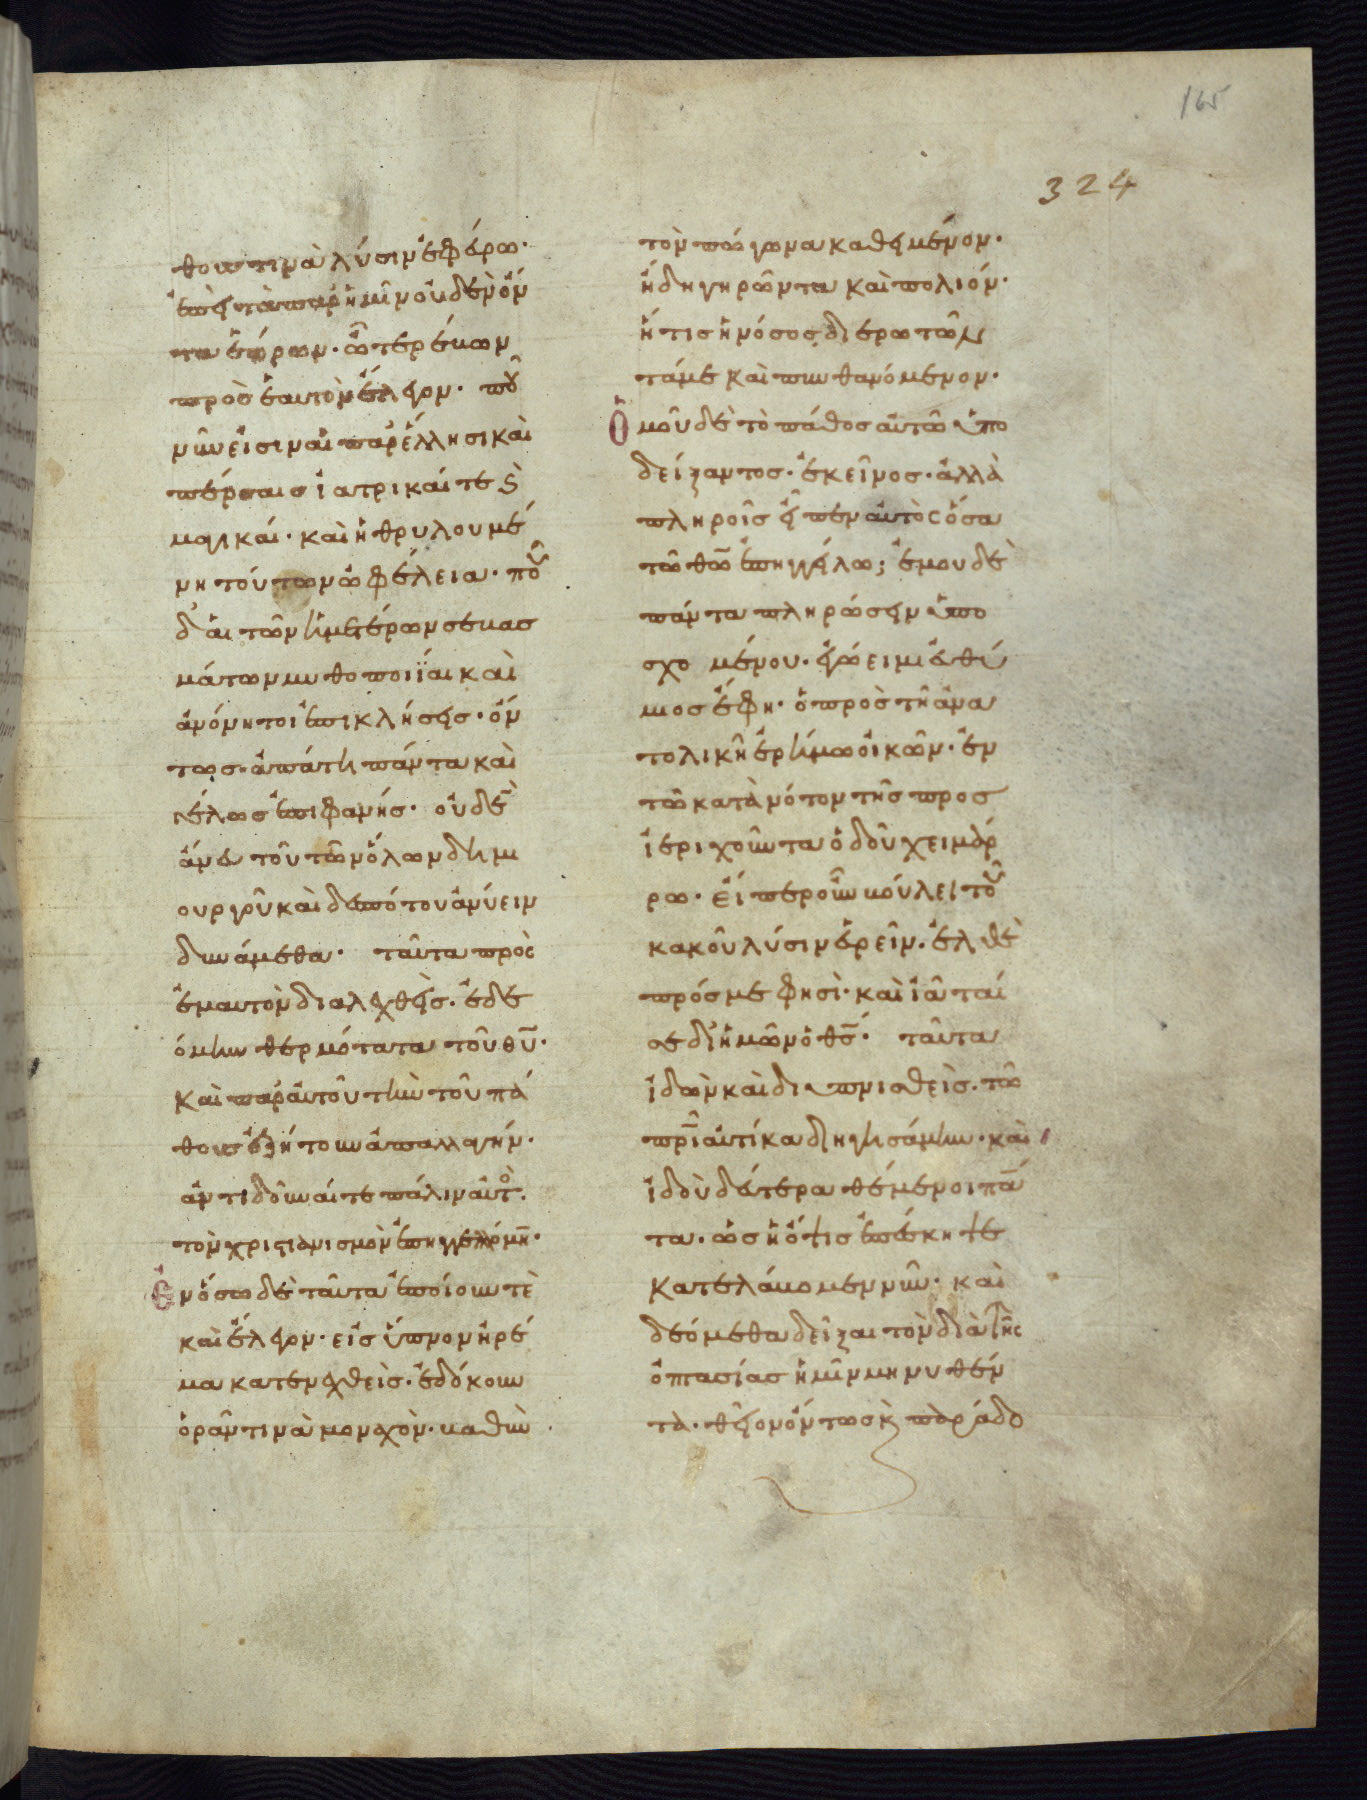 165
324
θους τινὰ λύσιν ἐφεύρω·
ἐπεὶ τὰ παρ' ἡμῖν οὐδὲν ὄν
τα ἑώρων· ὥστερ ἑκὼν
πρὸς ἑαυτὸν ἔλεγον· ποῦ
νῦν εἰσιν αἱ παρ' ἕλλησι καὶ
πέρσαις ἰατρικαί τε ϗ
μαγικαί· καὶ ἡ θρυλουμέ
νη τούτων ὠφέλεια· ποῦ
δ' αἱ τῶν ἡμετέρων σεβασ
μάτων μυθοποιΐαι καὶ
ἀνόνητοι ἐπικλήσεις· ὄν
τως ἀπάτη πάντα καὶ
γέλως ἐπιφανής· οὐδὲ
ἄνευ τοῦ τῶν ὅλων δημι
ουργοῦ καὶ δεσπότου ἀνύειν
δυνάμεθα· ταῦτα πρὸς
ἐμαυτὸν διαλεχθεὶς· ἐδε
όμην θερμότατα τοῦ θυ̅·
καὶ παρ' αὐτοῦ τὴν τοῦ πά
θους ἐζήτουν ἀπαλλαγήν·
ἀντιδοῦναί τε πάλιν αὐτὸ
τὸν χριστιανισμὸν ἐπηγγελλόμην·
Ἐν ὅσῳ δὲ ταῦτα ἐποίουν τὲ
καὶ ἔλεγον· εἰς ὕπνον ἠρέ
μα κατενεχθεὶς· ἐδόκουν
ὁρᾶν τινὰ μοναχὸν· βαθὺν
τὸν πώγωνα καθειμένον·
ἤδη γηρῶντα καὶ πολιόν·
ἥτις ἡ νόσος διερωτῶν
τά με καὶ πυνθανόμενον·
Ὁμοῦ δὲ τὸ πάθος αὐτῶ ὑπο
δείξαντος· ἐκεῖνος· ἀλλὰ
πληροῖς εἶπεν αὐτὸς ὅσα
τῶ θῶ ἐπηγγείλω; ἐμοῦ δὲ
πάντα πληρώσειν ὑπο
σχομένου· ἐγώ εἰμι εὐθύ
μιος ἔφη· ὁ πρὸς τῆ ἀνα
τολικῆ ἐρήμω οἰκῶν· ἐν
τῶ κατὰ νότον τῆς προς
ἱεριχοῦντα ὁδοῦ χειμάρ
ρω· εἴπερ οὖν βούλει τοῦ
κακοῦ λύσιν εὑρεῖν· ἐλθὲ
πρός με φησὶ· καὶ ἰᾶταί
σε δι' ἡμῶν ὁ θς̅· ταῦτα
ἰδὼν καὶ διυπνισθεὶς· τῶ
πρι̅ αὐτίκα διηγησάμην· καὶ
ἰδοὺ δεύτερα θέμενοι πάν
τα· ὡς ἡ ὄψις ἐπέσκηψε
κατελάβομεν νῦν· καὶ
δεόμεθα δεῖξαι τὸν διὰ τῆς
ὀπτασίας ἡμῖν μηνυθέν
τα· θεῖον ὄντως ϗ παράδο